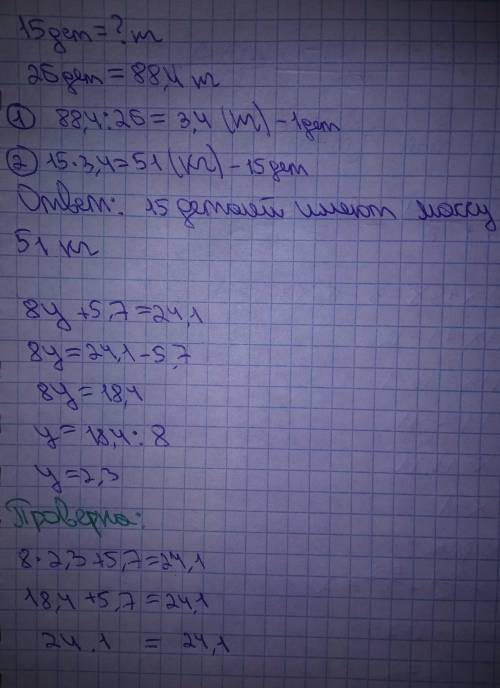 15 дет = ? т
26 дет = 88,4 т
① 88,4 : 26 = 3,4 (т) - 1 дет
② 15 · 3,4 = 51 (кг) - 15 дет
Ответ: 15 деталей имеют массу
51 кг
8y + 5,7 = 24,1
8y = 24,1 - 5,7
8y = 18,4
y = 18,4 : 8
y = 2,3
Проверка:
8 · 2,3 + 5,7 = 24,1
18,4 + 5,7 = 24,1
24.1 = 24,1